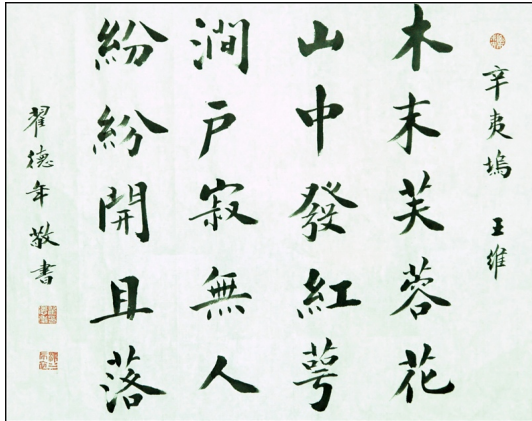 辛夷塢 王維
木末芙蓉花
山中發紅萼
澗戶寂無人
紛紛開且落
翟德年敬書